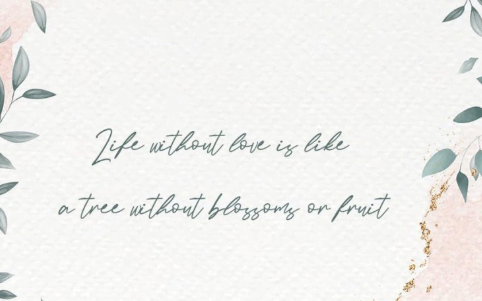 Life without love is like
a tree without blossoms or fruit